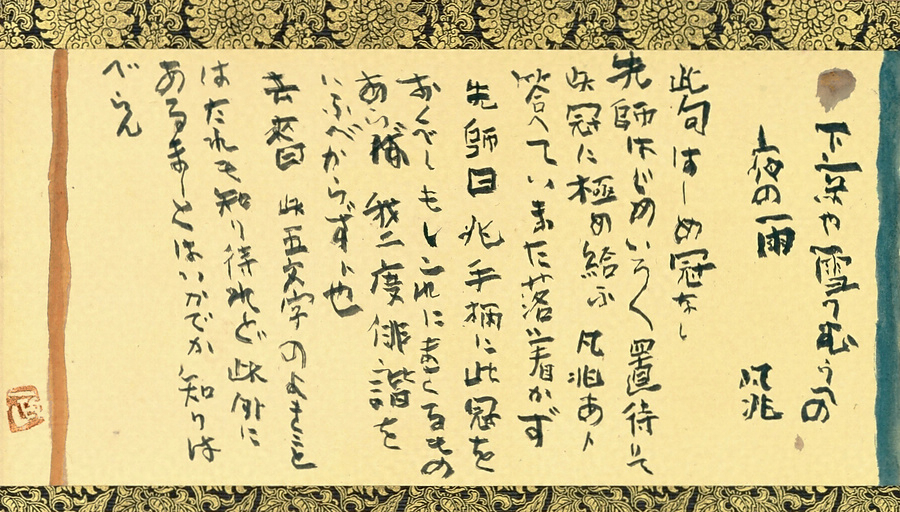 下京や雪つむうへの
夜の雨
凡兆
此句はしめ冠なし
先師はじめいろく置待りて
此冠に極め給ふ 凡兆あト
答へていまた落着かず
先師曰兆手柄に此冠を
おくべしもしこれにまさるもの
あらば 我二度俳諧を
いふべからずト也
去来曰 此五文字のよきこと
はたれも知り待れど此外に
あるましとはいかでか知りは
べらん